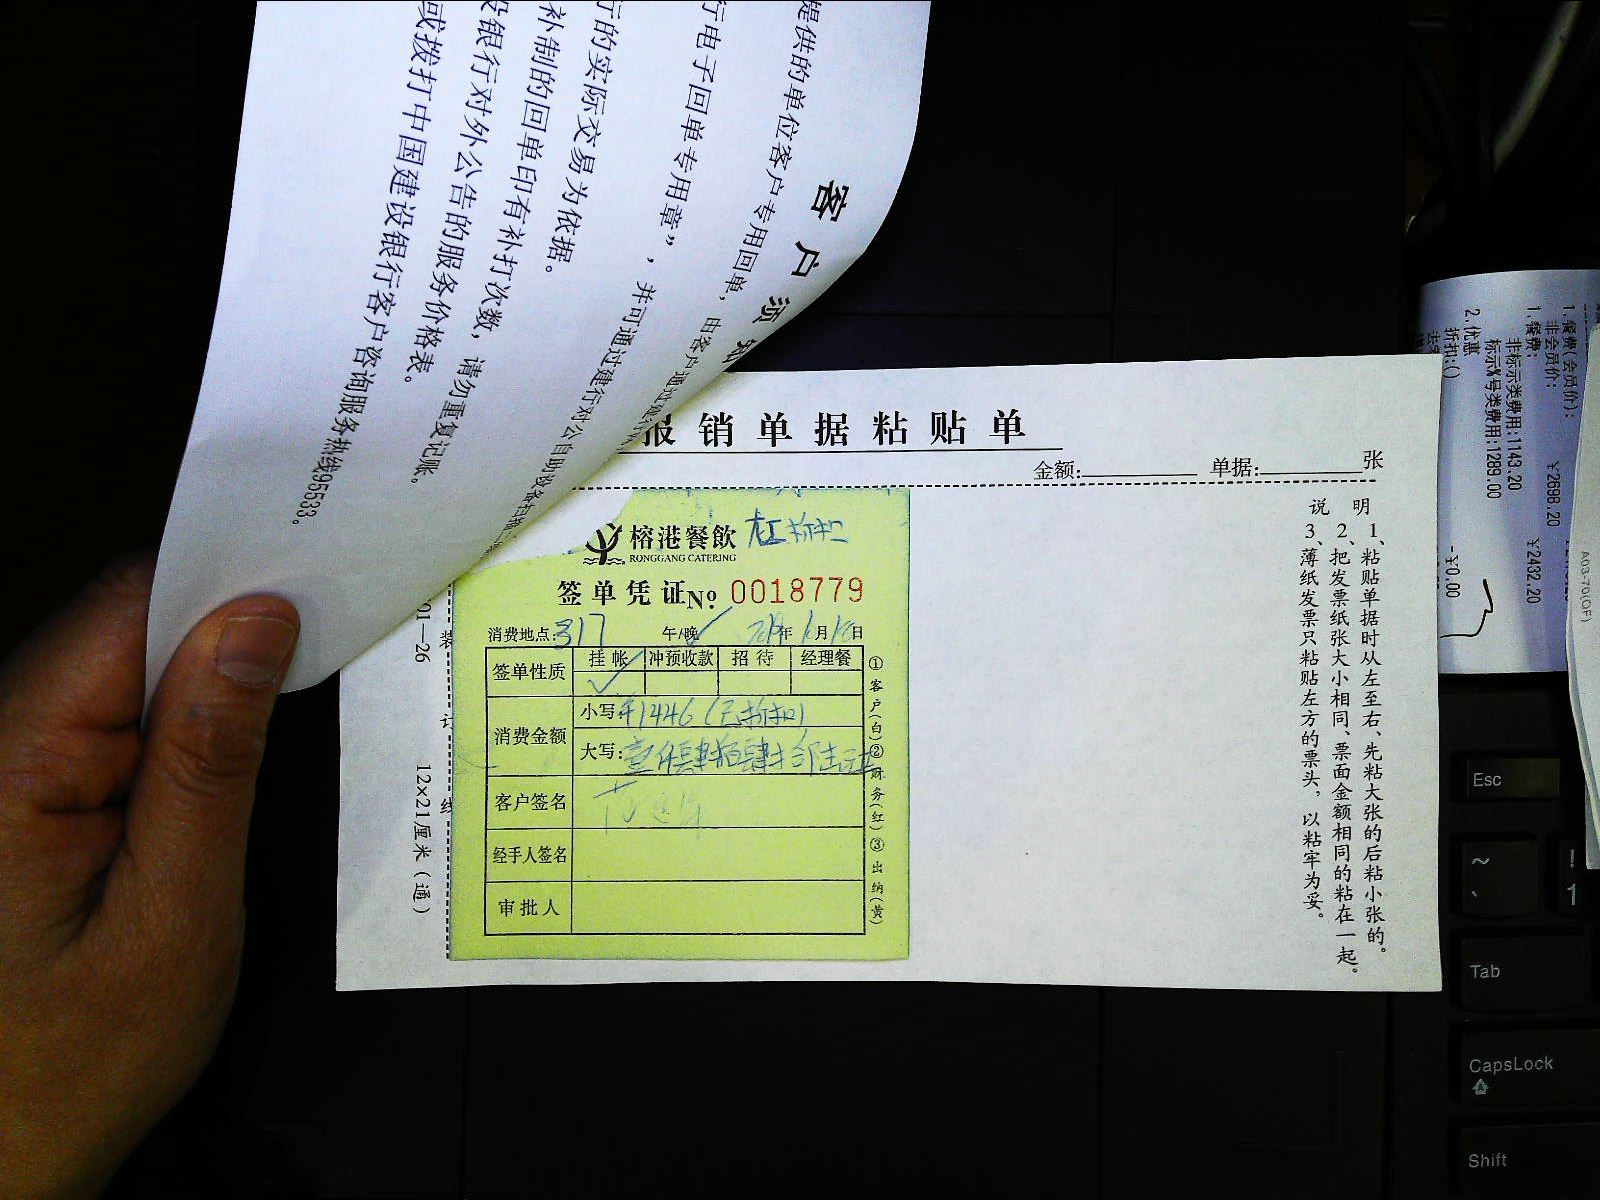 客户须知
提供的单位客户专用回单，由客户通过建行
行电子回单专用章”，并可通过建行对公自助设备扫描
行的实际交易为依据。
补制的回单印有补打次数，请勿重复记账。
设银行对外公告的服务价格表。
或拨打中国建设银行客户咨询服务热线95533。
报销单据粘贴单
金额: 单据: 张
榕港餐飲
RONGGANG CATERING
签单凭证 №: 0018779
消费地点: 317 午/晚 年 月 日
签单性质 挂帐 冲预收款 招待 经理餐
消费金额 小写: ¥1446 (无折扣)
大写: 壹仟肆佰肆拾陆元
客户签名
经手人签名
审批人
①客户(白)②财务(红)③出纳(黄)
01—26
装
订
线
12×21厘米(通)
说明
1、粘贴单据时从左至右、先粘大张的后粘小张的。
2、把发票纸张大小相同、票面金额相同的粘在一起。
3、薄纸发票只粘贴左方的票头，以粘牢为妥。
1.餐费(会员价):
非会员价: ¥2698.20
1.餐费: ¥2432.20
非标示类费用:1143.20
标示%号类费用:1289.00
2.优惠
折扣:() -¥0.00
A03-70(QF)
Esc
~
、
!
1
Tab
CapsLock
Shift